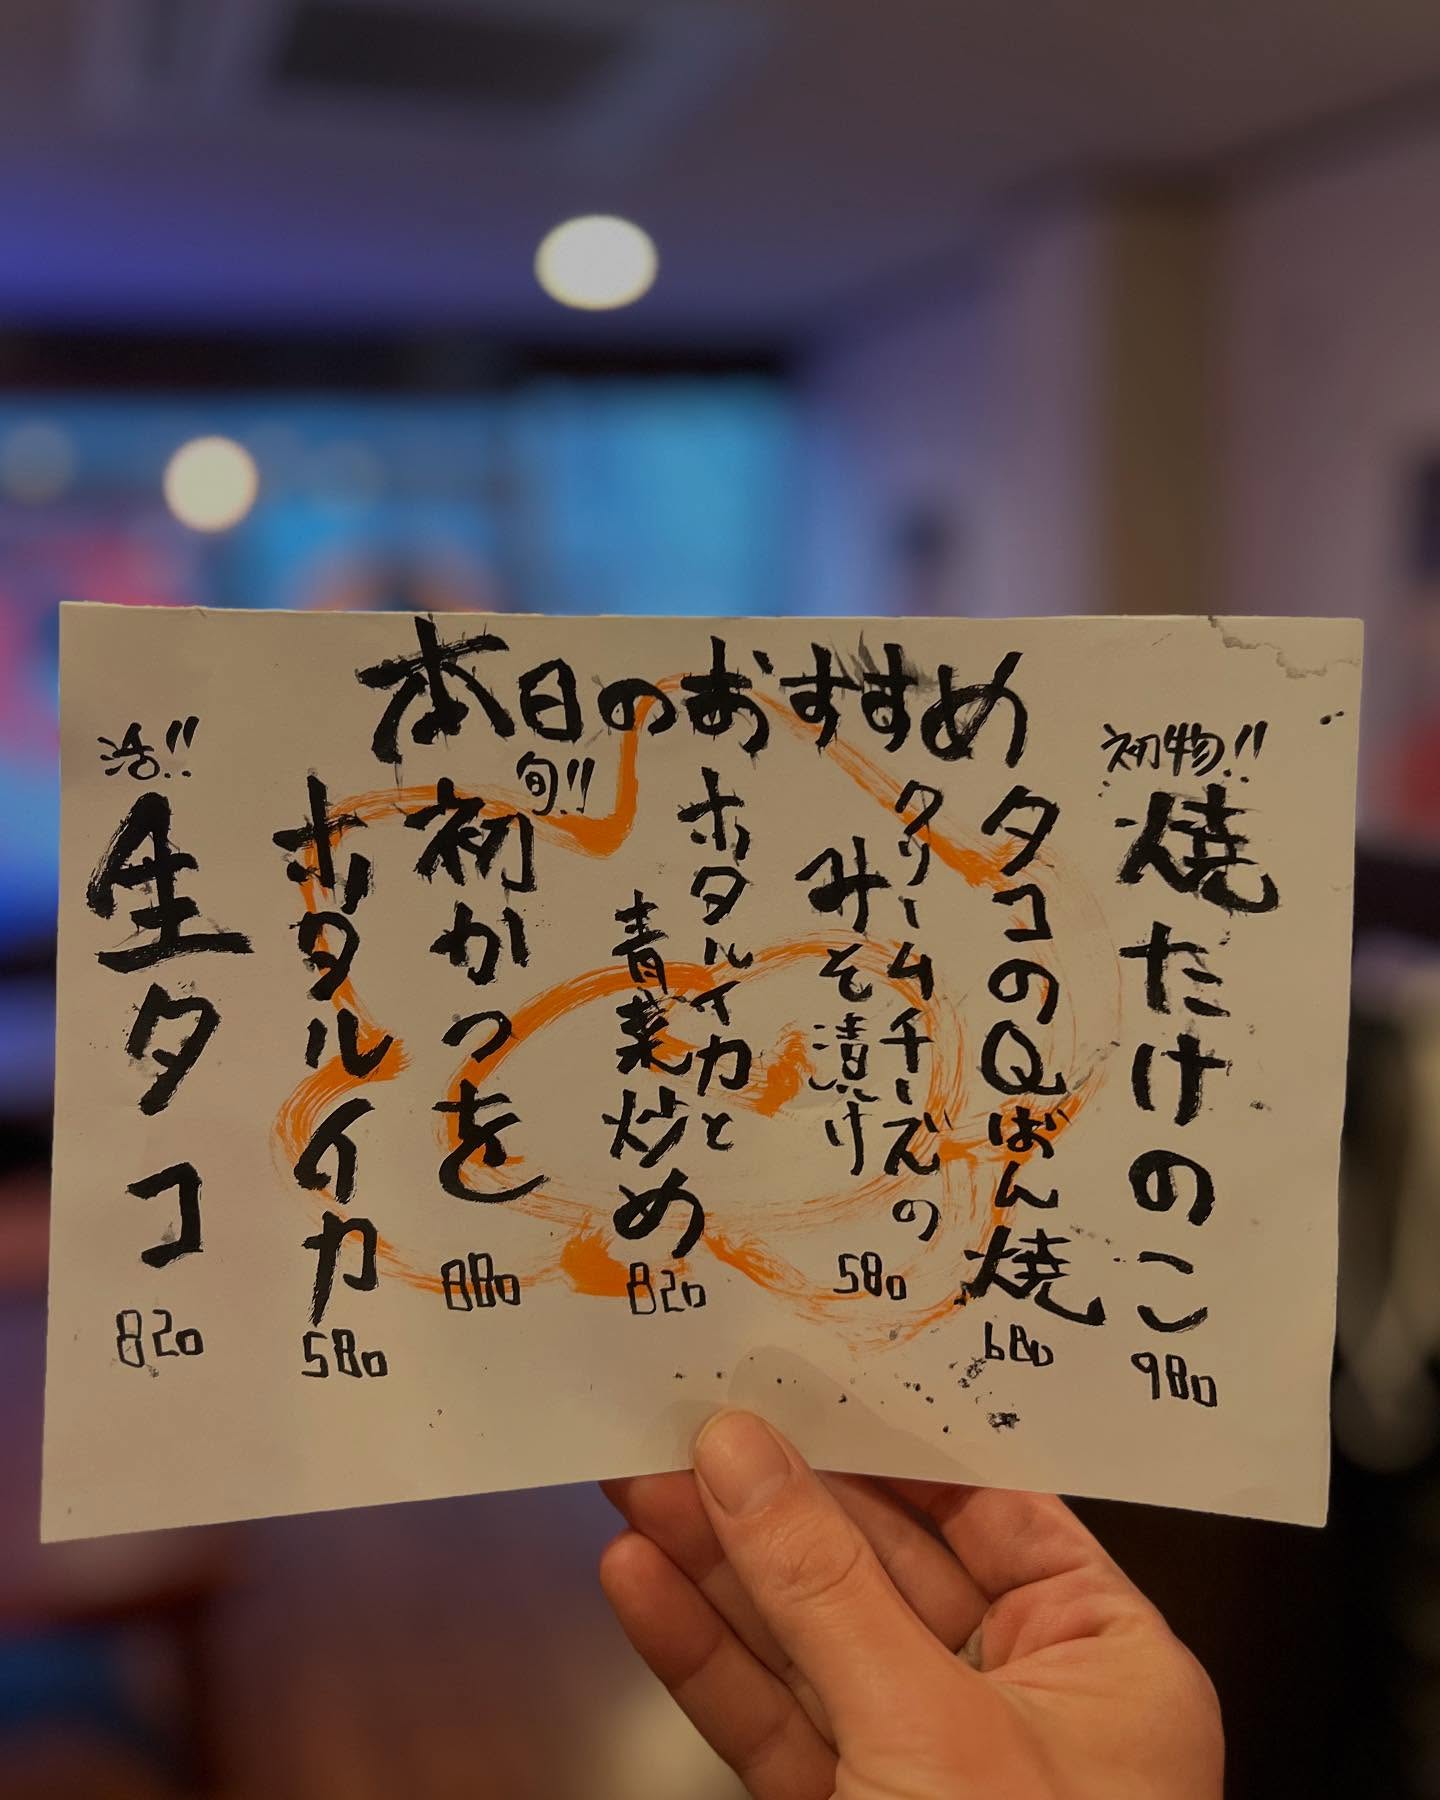 本日のおすすめ
初物!!
焼たけのこ
980
タコのQばん焼
680
クリームチーズの
みそ漬け
580
ホタルイカと
青菜炒め
820
旬!!
初かつを
880
ホタルイカ
580
活!!
生タコ
820